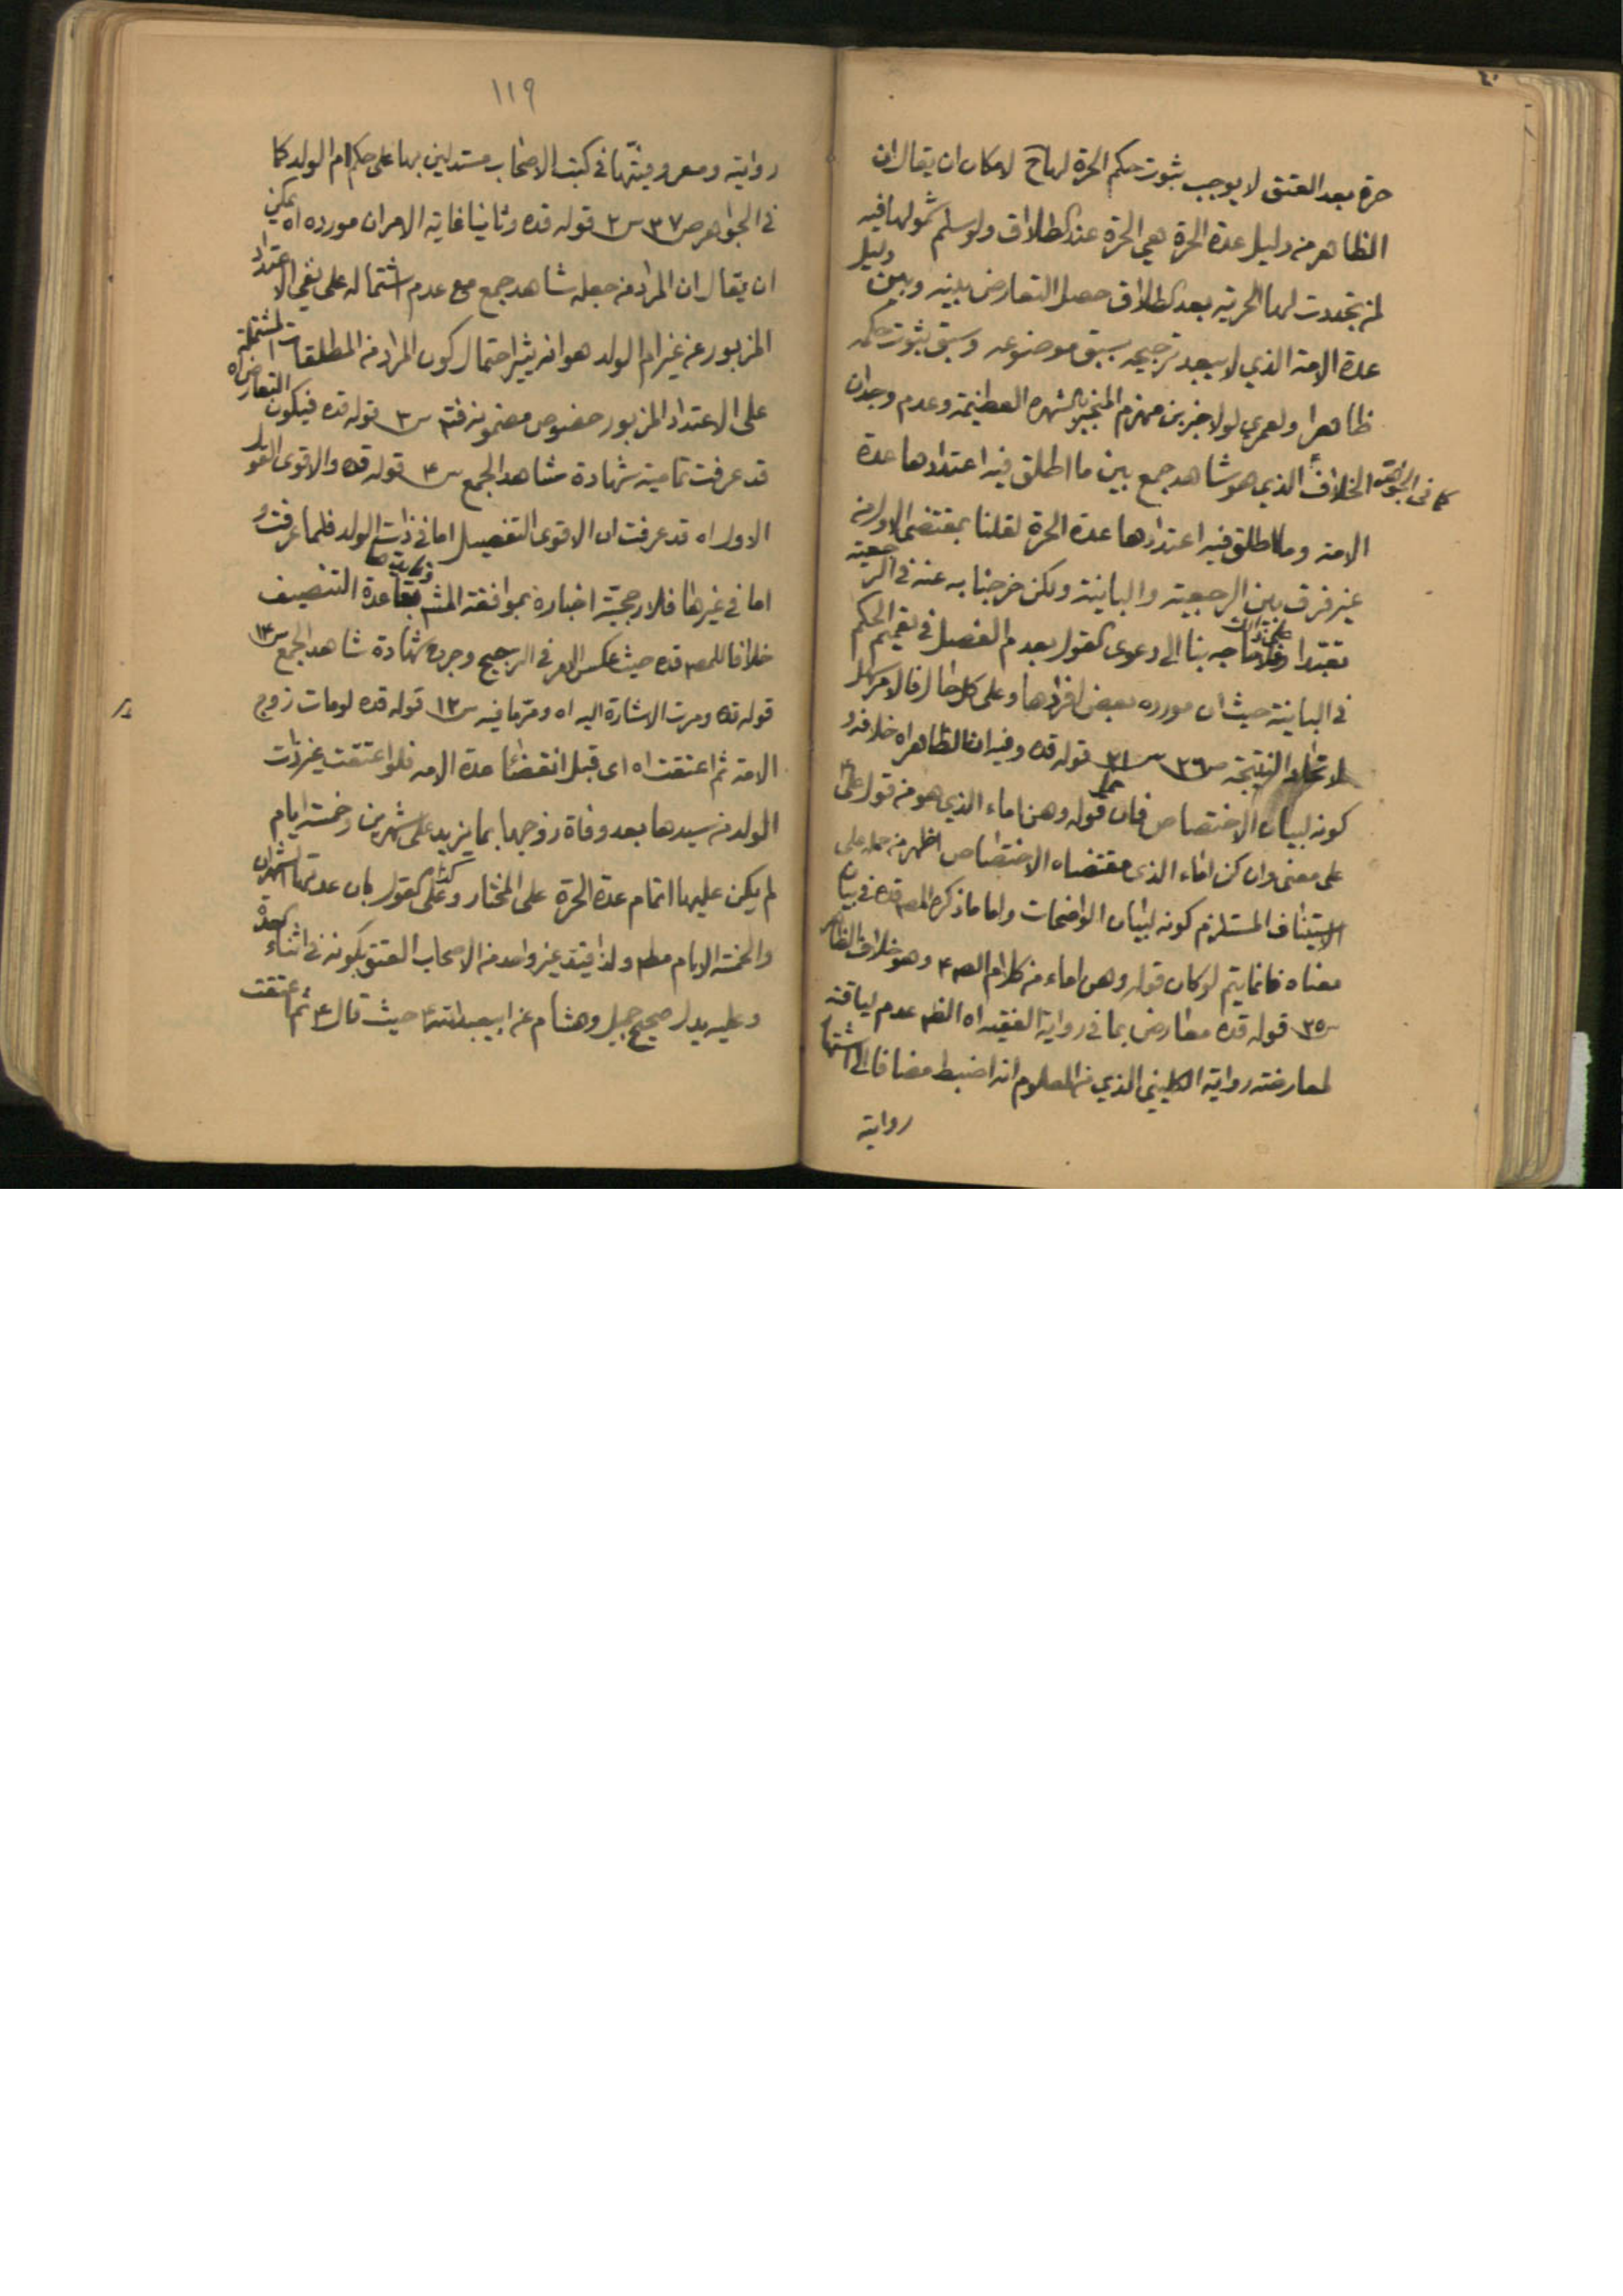 حرة بعد العتق لا يوجب ثبوت حكم الحرة لها ح لامكان ان يقال ان
الظاهر من دليل عدة الحرة هي الحرة عند الطلاق ولو سلم شمولها فيه
لمن تجددت لها الحرية بعد الطلاق حصل التعارض بينه وبين دليل
عدة الامة الذي لا يبعد ترجيحه بسبق موضوعه وسبق ثبوت حكمه
ظاهرا ولعمري لولا خبر بن مهزم المنجبر بالشهره العظيمة وعدم وجدان
الخلاف كما في الجواهر الذي هو شاهد جمع بين ما اطلق فيه اعتدادها عدة
الامة وما اطلق فيه اعتدادها عدة الحرة لقلنا بمقتضى الاول من
غير فرق بين الرجعية والباينة ولكن خرجنا به عنه في الرجعية
تعبدا بنا الى دعوى القول بعدم الفصل في تعميم الحكم
في الباينة حيث ان مورده بعض افرادها وعلى كل حال فالامر سهل
لاتحاد النتيجة ص ٣٦ س ٣١ قوله قده وفيه ان الظاهر اه خلافه و
كونه لبيان الاختصاص فان حمل قوله وهن اماء الذي هو من قول علي ع
على معنى وان كن اماء الذي مقتضاه الاختصاص اظهر من حمله على
الاستيناف المستلزم كونه لبيان الواضحات واما ما ذكره المص قده في بيان
معناه فانما يتم لو كان قوله وهن اماء من كلام الص ع وهو خلاف الظاهر
س ٣٥ قوله قده معارض بما في رواية الفقيه اه الظ عدم لياقته
لمعارضته رواية الكليني الذي من المعلوم انه اضبط مضافا الى اشتهار
رواية
١١٩
روايته ومعروفيتها في كتب الاصحاب مستدلين بها على حكم ام الولد كما
في الجواهر ص ٣٧ س ٢ قوله قده وثانيا غاية الامر ان مورده اه يمكن
ان يقال ان المراد من جعله شاهد جمع مع عدم اشتماله على نفي الاعتداد
المزبور عن غير ام الولد هو انه يثير احتمال كون المراد من المطلقات المشتملة
على الاعتداد المزبور خصوص مضمونه فتم س ٣ قوله قده فيكون التعارض اه
قد عرفت تمامية شهادة شاهد الجمع س ٤ قوله قده والاقوى القول
الاول اه قد عرفت ان الاقوى التفصيل اما في ذات الولد فلما عرفت و
اما في غيرها فلارجحية اخباره بموافقة المش بقاعدة التنصيف
خلافا للمص قده حيث عكس الامر في الترجيح وجرح شهادة شاهد الجمع س ١٣
قوله قده ومرت الاشارة اليه اه ومر ما فيه س ١٢ قوله قده لو مات زوج
الامة ثم اعتقت اه اى قبل انقضاء عدة الامه فلو اعتقت غير ذات
الولد من سيدها بعد وفاة زوجها بما يزيد على شهرين وخمسة ايام
لم يكن عليها اتمام عدة الحرة على المختار وكذا على القول بان عدتها الشهران
والخمسة الايام مطم ولذا قيد غير واحد من الاصحاب العتق بكونه في اثناء العدة
وعليه يدل صحيح جميل وهشام عن ابيعبدالله ع حيث قال ع ثم اعتقت